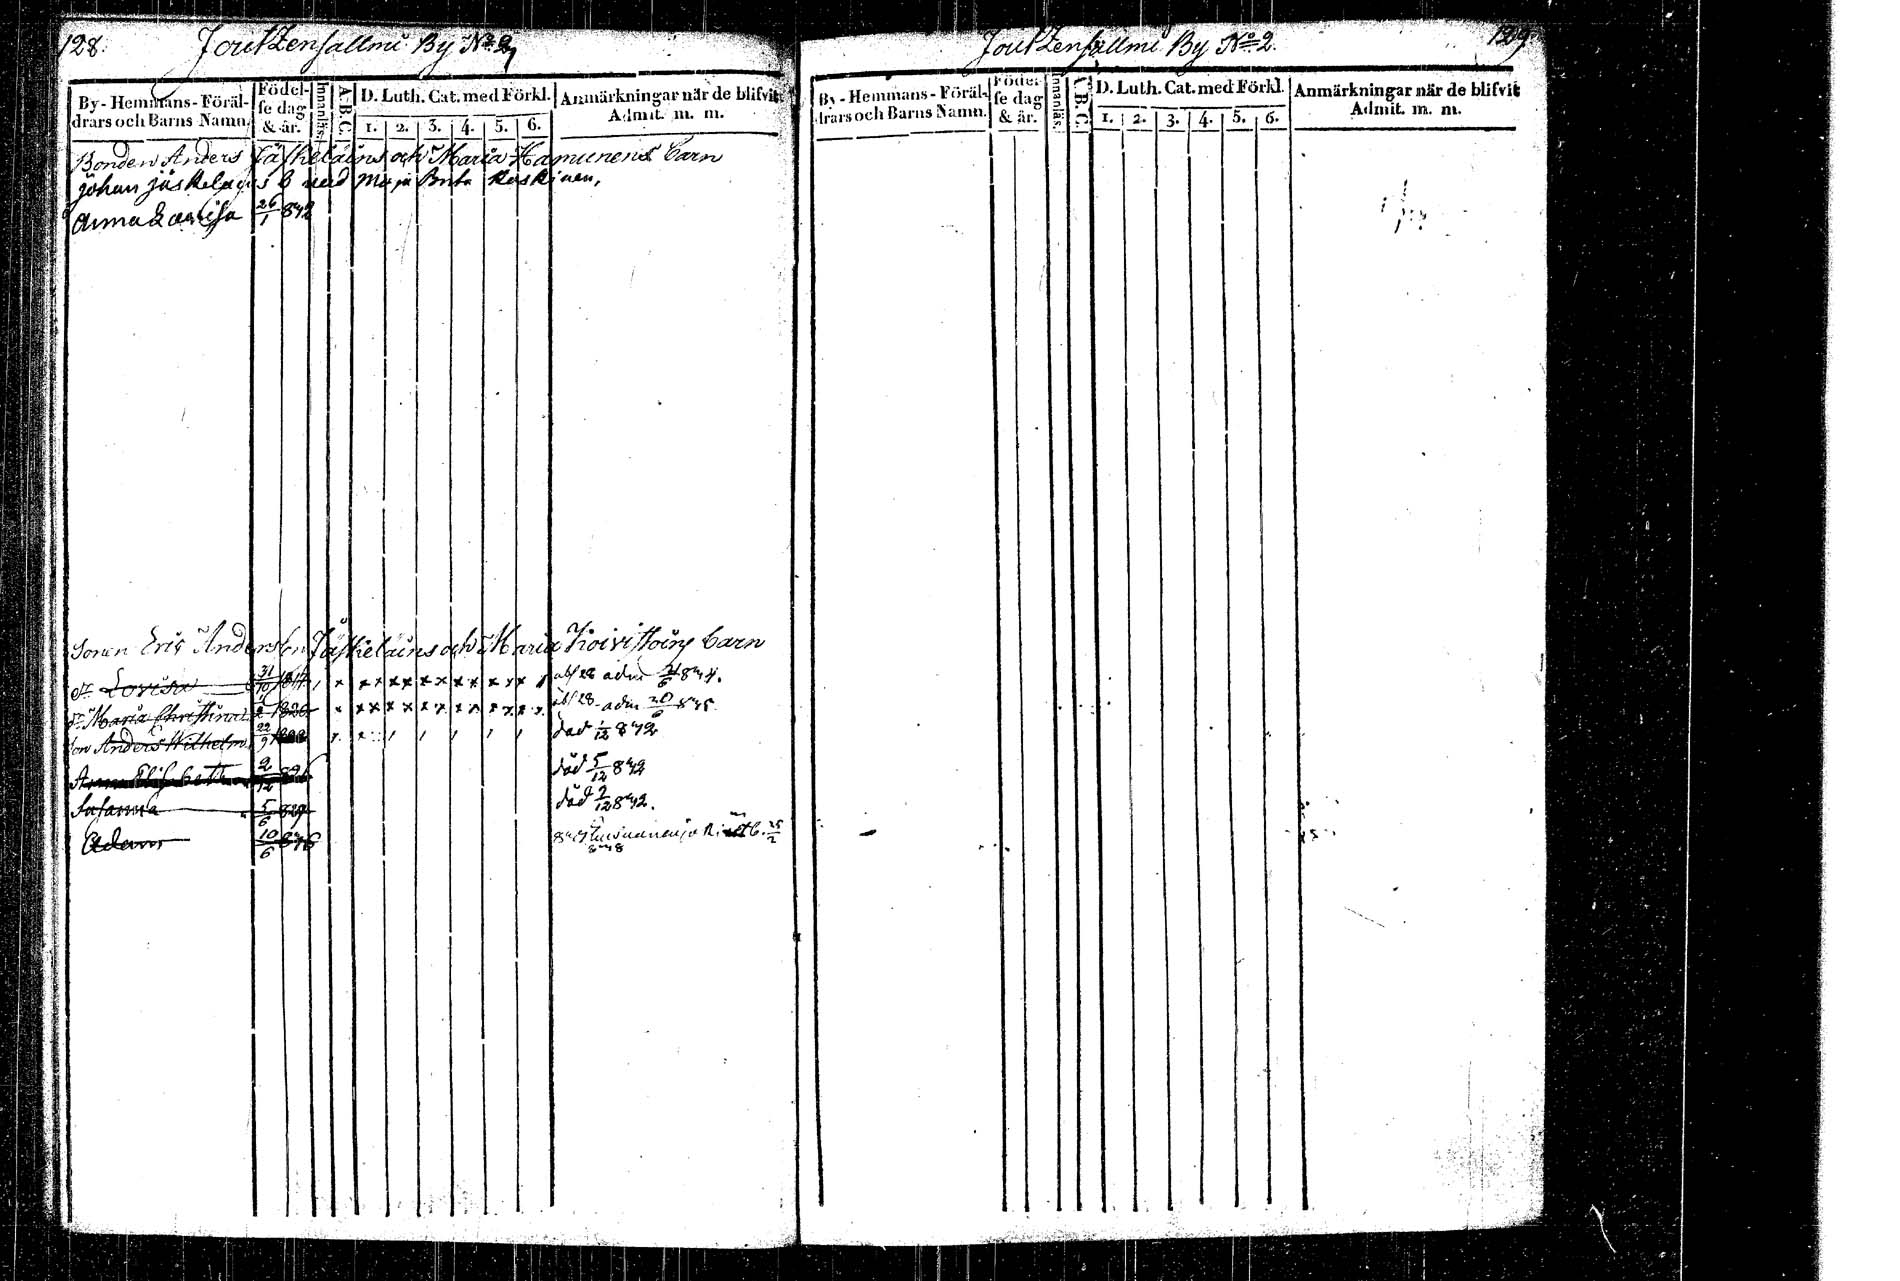 128. Joutzensallmi By No 2
By - Hemmans - Föräldrars och Barns Namn.
Födelse dag & år.
Innanläs.
A. B. C.
D. Luth. Cat. med Förkl.
1. 2. 3. 4. 5. 6.
Anmärkningar när de blifvit Admit. m. m.
Bonden Anders Jäskeläins och Maria Hamunens barn
Johan Jäskelains b med Maja Brita Koskinen,
Anna Lovisa 26/1 842
Sonen Eric Anderson Jäskeläins och Maria Koivistoins barn
dr Lovisa 31/10 1817 abs 28 adm 21/6 844.
dr Maria Christina 1820 abs 28 adm 20/6 845
son Anders Wilhelm 22/9 död 1/12 842
Anna Elisabeth 2/12 död 5/12 842
Susanna 5/6 829 död 2/12 842.
Adam 10/6 836 25/2 848
Joutzensallmi By No 2. 129.
By - Hemmans - Föräldrars och Barns Namn.
Födelse dag & år.
Innanläs.
A. B. C.
D. Luth. Cat. med Förkl.
1. 2. 3. 4. 5. 6.
Anmärkningar när de blifvit Admit. m. m.